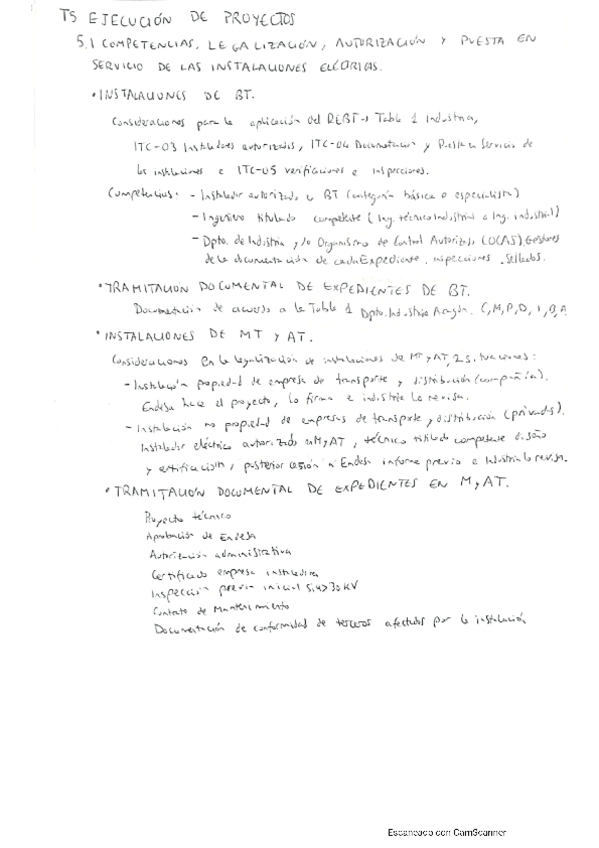 T5 EJECUCIÓN DE PROYECTOS
5.1 COMPETENCIAS, LEGALIZACIÓN, AUTORIZACIÓN Y PUESTA EN
SERVICIO DE LAS INSTALACIONES
• INSTALACIONES DE BT.
Consideraciones para la aplicación del REBT → Tabla 1 Industria,
ITC-03 Instaladores autorizados, ITC-04 Documentación y Puesta en Servicio de
las instalaciones e ITC-05 verificaciones e inspecciones.
Competencias: - Instalador autorizado en BT (categoría básica o especialista)
- Ingeniero titulado competente (Ing. técnico Industrial o Ing. industrial)
- Dpto. de Industria y/o Organismo de Control Autorizado (OCAS), Gestores
de la documentación de cada Expediente, inspecciones, sellados.
• TRAMITACIÓN DOCUMENTAL DE EXPEDIENTES DE BT.
Documentación de acuerdo a la Tabla 1 Dpto. Industria Aragón. C, M, P, D, I, B, A
• INSTALACIONES DE MT Y AT.
Consideraciones en la legalización de instalaciones de MT y AT, 2 situaciones:
- Instalación propiedad de empresa de transporte y distribución (compañía).
Endesa hace el proyecto, lo firma e industria lo revisa.
- Instalación no propiedad de empresas de transporte y distribución (privada).
Instalador eléctrico autorizado MyAT, técnico titulado competente diseño
y certificación, posterior cesión a Endesa informe previo e Industria lo revisa.
• TRAMITACIÓN DOCUMENTAL DE EXPEDIENTES EN M y AT.
Proyecto técnico
Aprobación de Endesa
Autorización administrativa
Certificado empresa instaladora
Inspección previa inicial si >30 KV
Contrato de Mantenimiento
Documentación de conformidad de terceros afectados por la instalación
Escaneado con CamScanner